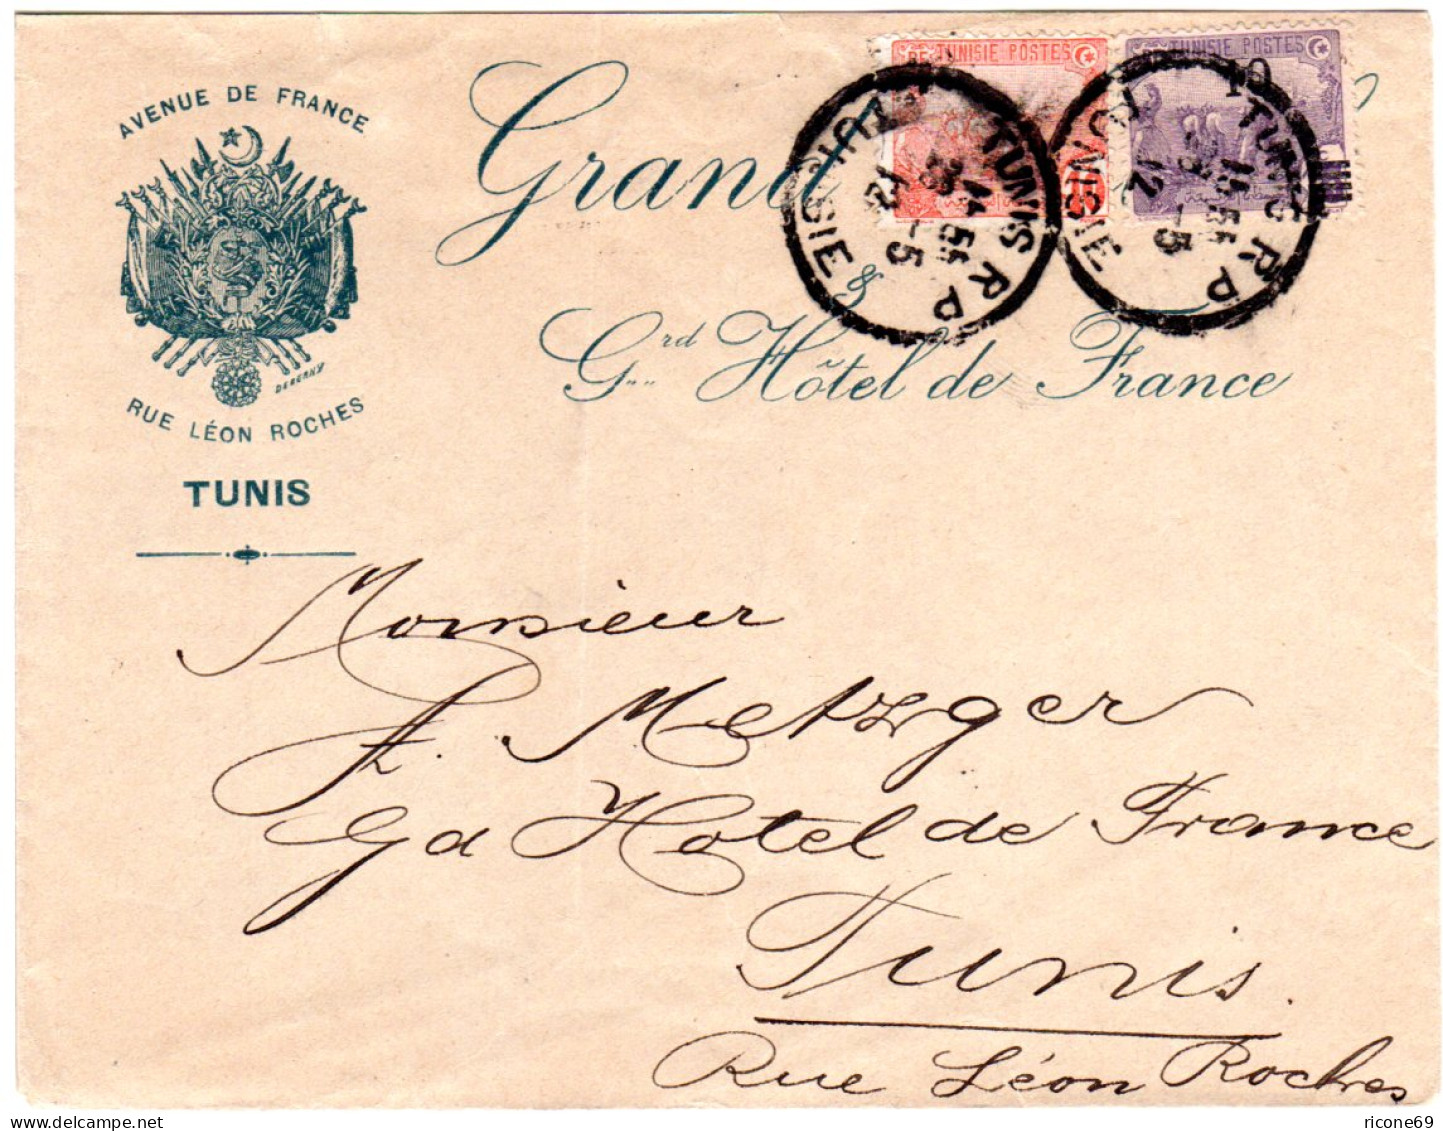 AVENUE DE FRANCE
DEBERNY
RUE LÉON ROCHES
TUNIS
Grand
&
Grd Hôtel de France
TUNISIE POSTES
TUNISIE POSTES
10
TUNIS R P
TUNISIE
TUNIS R P
TUNISIE
Monsieur
F. Metzger
Gd Hotel de France
Tunis.
Rue Léon Roches
ricone69